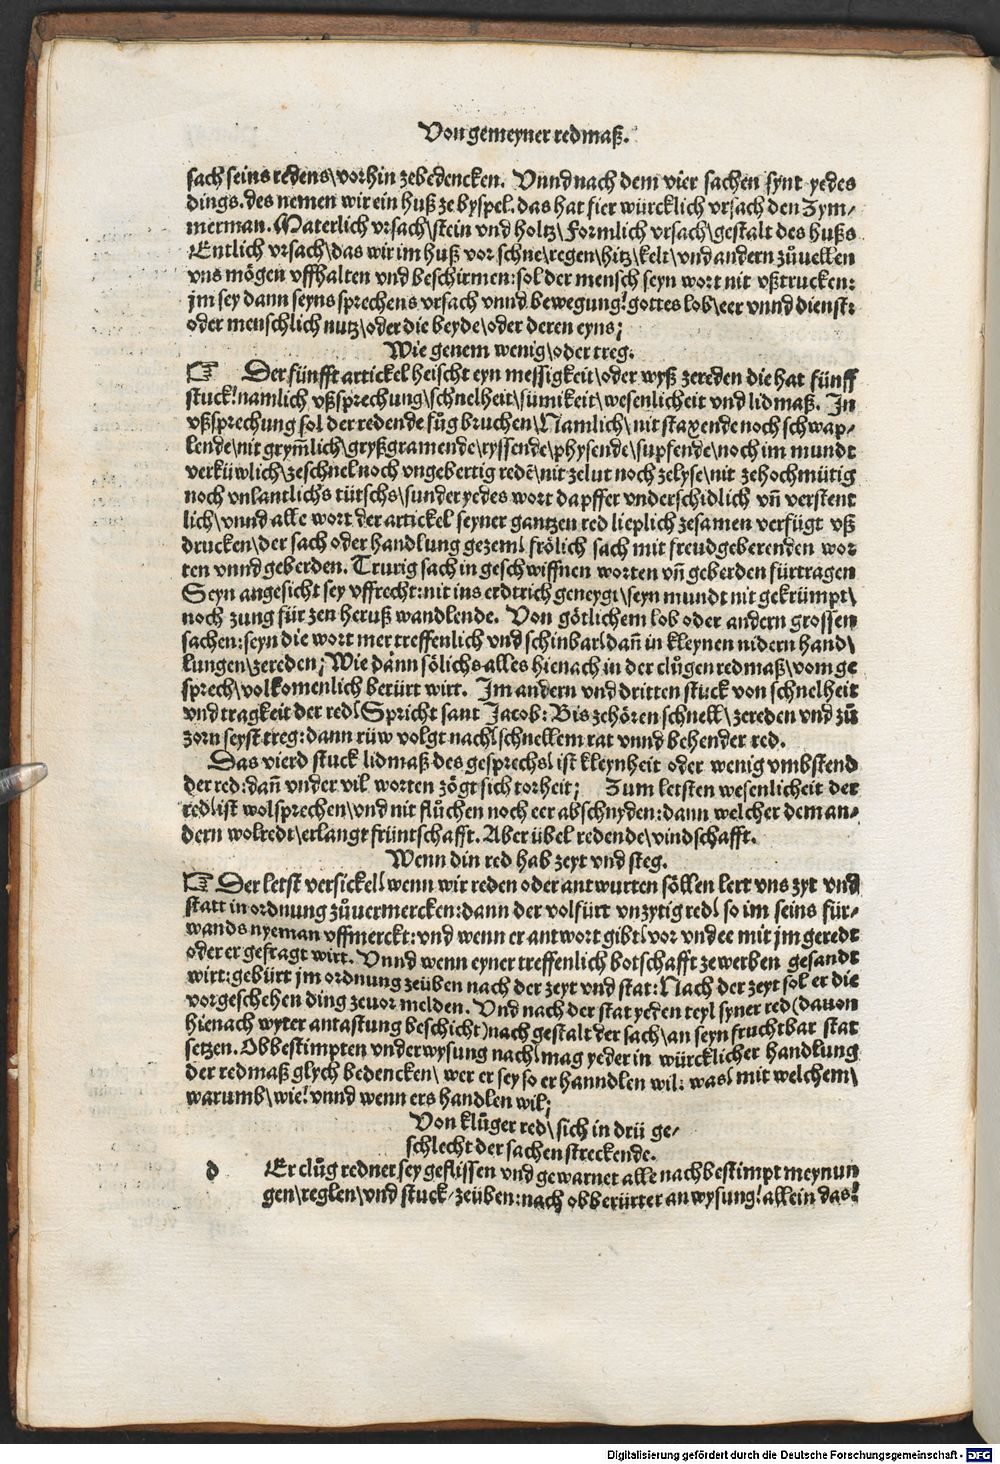 Von gemeyner redmaß.
sach seins redens\vorhin zebedencken. Vnnd nach dem vier sachen synt yedes
dings. des nemen wir ein huß ze byspel. das hat fier würcklich vrsach den Zym-
merman. Materlich vrsach\stein vnd holtz\Formlich vrsach\gestalt des hußs
Entlich vrsach\das wir im huß vor schne\regen\hitz\kelt\vnd andern zůuellen
vns mögen vffhalten vnd beschirmen: sol der mensch seyn wort nit vßtrucken:
jm sey dann seyns sprechens vrsach vnnd bewegung! gottes lob\eer vnnd dienst:
oder menschlich nutz\oder die beyde\oder deren eyns;
Wie genem wenig\oder treg.
☞ Der fünfft artickel heischt eyn messigkeit\oder wyß zereden die hat fünff
stuck! namlich vßsprechung\schnelheit\sümikeit\wesenlicheit vnd lidmaß. In
vßsprechung sol der redende fůg bruchen\Namlich\nit staxende noch schwap-
lende\nit grym̄lich\gryßgramende\ryssende\physende\supfende\noch im mundt
verküwlich\zeschnel noch vngebertig redē\nit zelut noch zelyse\nit zehochmütig
noch vnlantlichs tütschs\sunder yedes wort dapffer vnderschidlich vn̄ verstent
lich\vnnd alle wort der artickel seyner gantzen red lieplich zesamen verfügt vß
drucken\der sach oder handlung gezem! frölich sach mit freudgeberenden wor
ten vnnd geberden. Trurig sach in geschwiffnen worten vn̄ geberden fürtragen
Seyn angesicht sey vffrecht: nit ins erdtrich geneygt\seyn mundt nit gekrümpt\
noch zung für zen heruß wandlende. Von götlichem lob oder andern grossen
sachen: seyn die wort mer treffenlich vnd schinbar! dan̄ in kleynen nidern hand\
lungen\zereden; Wie dann sölichs alles hienach in der clůgen redmaß\vom ge
sprech\volkomenlich berürt wirt. Im andern vnd dritten stuck von schnelheit
vnd tragkeit der red! Spricht sant Jacob: Bis zehören schnell\zereden vnd zů
zorn seyst treg: dann rüw volgt nach! schnellem rat vnnd behender red.
Das vierd stuck lidmaß des gesprechs! ist kleynheit oder wenig vmbstend
der red: dan̄ vnder vil worten zögt sich torheit; Zum letsten wesenlicheit der
red! ist wolsprechen\vnd nit flůchen noch eer abschnyden: dann welcher dem an-
dern wolredt\erlangt früntschafft. Aber übel redende\vindschafft.
Wenn din red hab zeyt vnd steg.
☞ Der letst versickel! wenn wir reden oder antwurten söllen lert vns zyt vnd
statt in ordnung zůuermercken: dann der volfürt vnzytig red! so im seins für-
wands nyeman vffmerckt: vnd wenn er antwort gibt! vor vnd ee mit jm geredt
oder er gefragt wirt. Vnnd wenn eyner treffenlich botschafft zewerben gesandt
wirt: gebürt jm ordnung zeüben nach der zeyt vnd stat: Nach der zeyt sol er die
vorgeschehen ding zeuor melden. Vnd nach der stat yeden teyl syner red (dauon
hienach wyter antastung beschicht) nach gestalt der sach\an seyn fruchtbar stat
setzen. Ob bestimpten vnderwysung nach! mag yeder in würcklicher handlung
der redmaß glych bedencken\ wer er sey so er hanndlen wil: was! mit welchem\
warumb\wie! vnnd wenn ers handlen wil;
Von klůger red\sich in drü ge-
schlecht der sachen streckende.
d Er clůg redner sey geflissen vnd gewarnet alle nachbestimpt meynun
gen\reglen\vnd stuck-zeüben: nach obberürter anwysung! allein das!
Digitalisierung gefördert durch die Deutsche Forschungsgemeinschaft - DFG